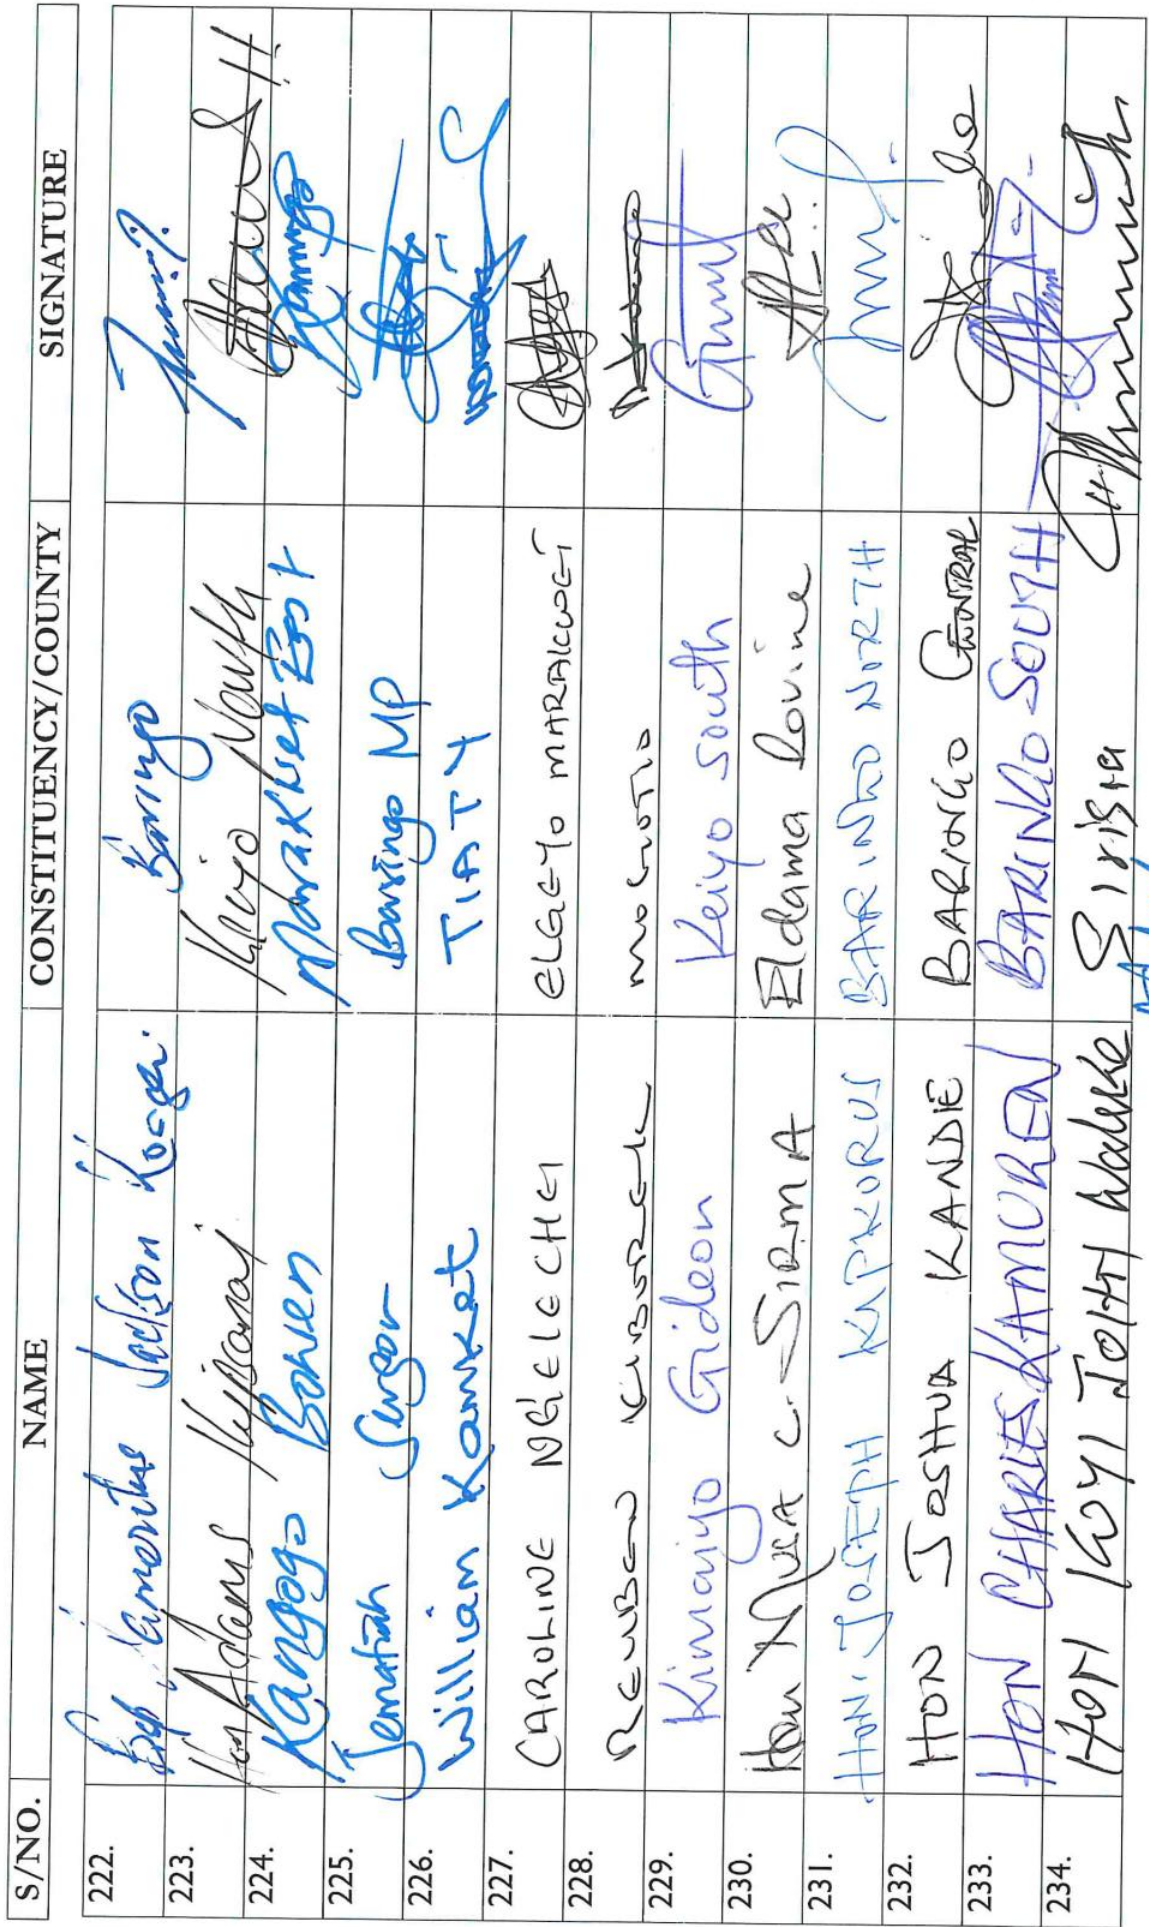 S/NO. NAME CONSTITUENCY/COUNTY SIGNATURE
222. Jackson Kosgei Baringo
223. Hon Adams Kipsanai Keiyo North
224. Kangogo Bowen Marakwet East
225. Jematiah Sergon Baringo MP
226. William Kamket TIATY
227. CAROLINE NGELECHEI ELGEYO MARAKWET
228. REUBEN KIBOREK MOGOTIO
229. Kimaiyo Gideon Keiyo South
230. Hon Musa C. SIRMA Eldama Ravine
231. HON. JOSEPH KAPKORUS BARINGO NORTH
232. HON JOSHUA KANDIE BARINGO CENTRAL
233. HON CHARLES KAMUREN BARINGO SOUTH
234. HON KOYI JOHN Waluke Sirisia